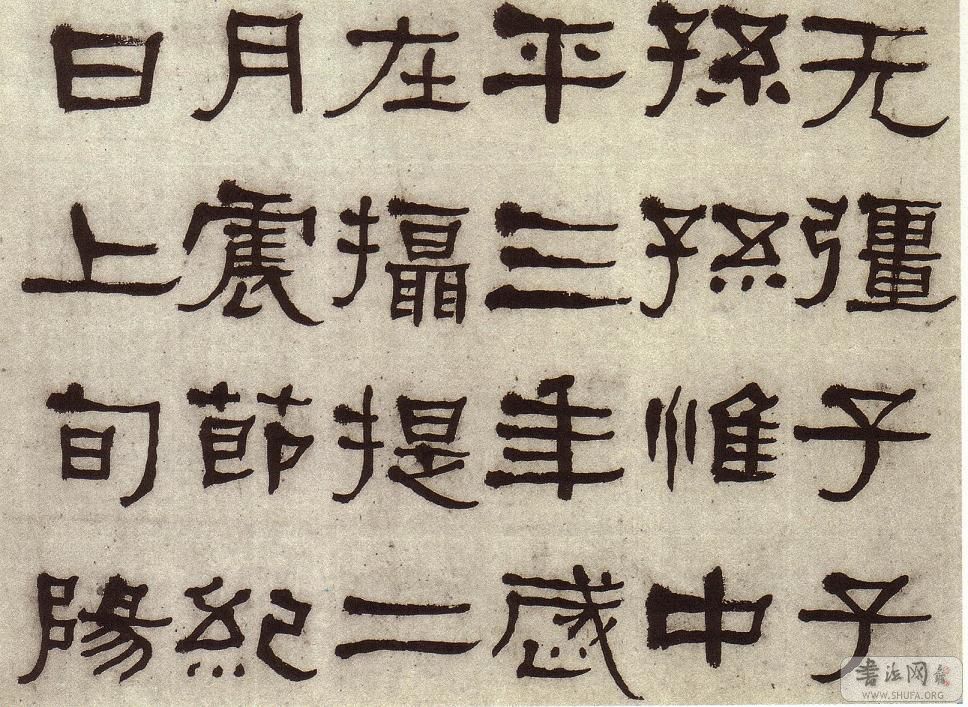 无彊子子
孫孫惟中
平三年歲
在攝提二
月震節紀
日上旬陽
書法网
WWW.SHUFA.ORG